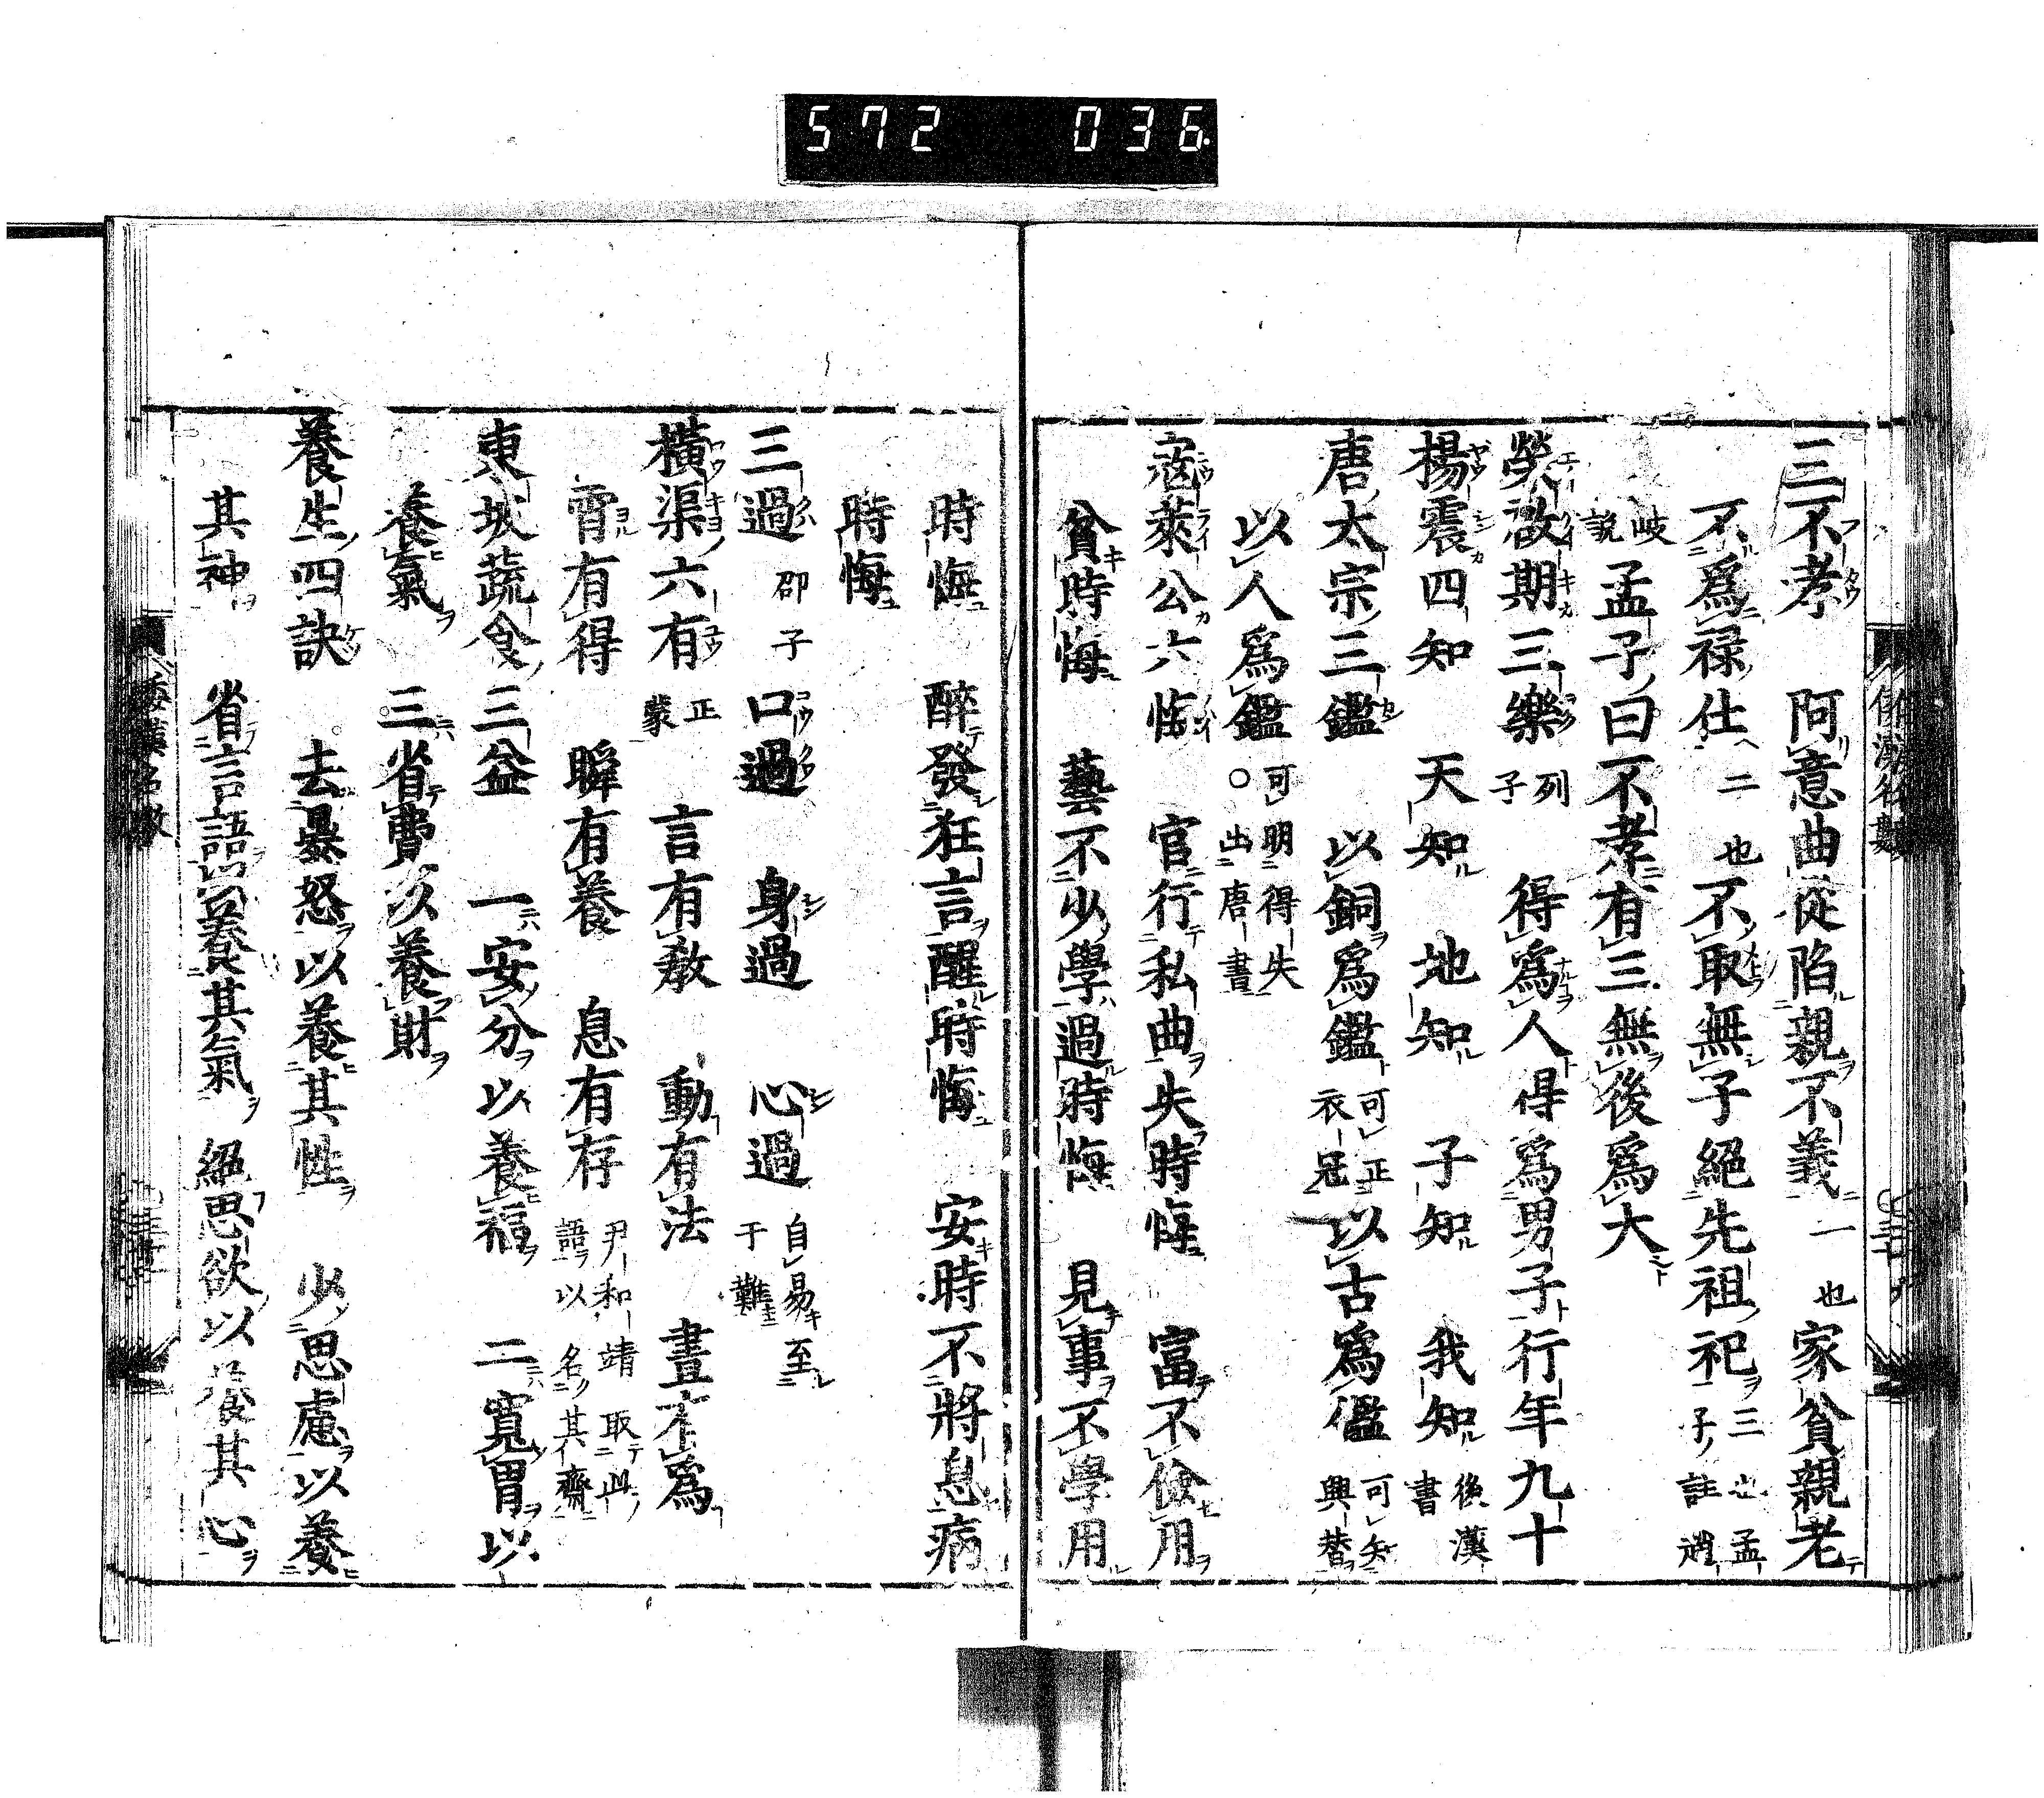 572 036
三不孝 阿意曲從陷親不義一也家貧親老
不爲禄仕二也不取無子絕先祖祀三也孟子註趙
岐説孟子曰不孝有三無後爲大
榮啟期三樂列子 得爲人得爲男子行年九十
楊震四知 天知 地知 子知 我知後漢書
唐太宗三鑑 以銅爲鑑可正衣冠以古爲鑑可知興替
以人爲鑑可明得失○出唐書
寇萊公六悔 官行私曲失時悔 富不儉用
貧時悔 藝不少學過時悔 見事不學用
時悔 醉發狂言醒時悔 安時不將息病
時悔
三過邵子 口過 身過 心過自易至于難
橫渠六有正蒙 言有教 動有法 晝有爲
宵有得 瞬有養 息有存尹和靖取此語以名其齋
東坡蔬食三益 一安分以養福 二寬胃以
養氣 三省費以養財
養生四訣 去暴怒以養其性 少思慮以養
其神 省言語以養其氣 絕思欲以養其心